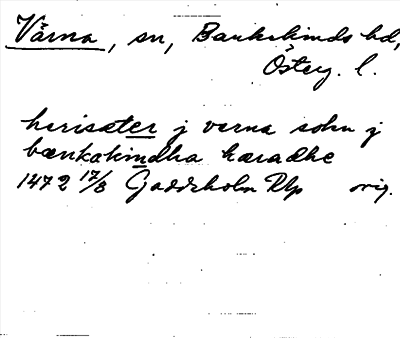 Vårna, sn, Bankekinds hd,
Österg. l.
herisæter j verna sokn j
bænkakindha hæradhe
1472 17/8 Gaddeholm Rlp orig.